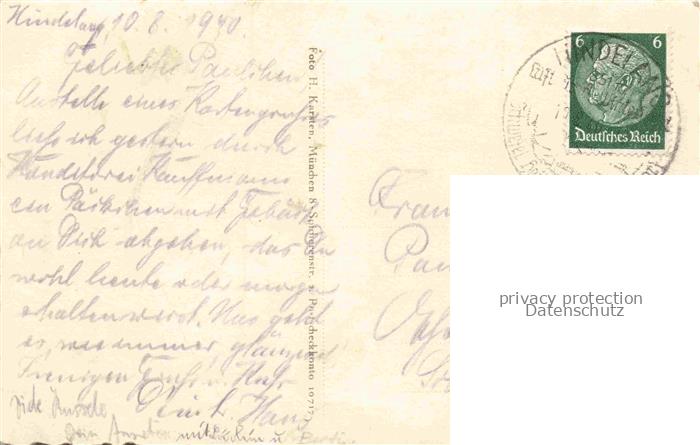 Hindelang, 10.8.1940.
Geliebtes Paulchen,
Anstelle eines Kartengrußes
ließ ich gestern durch
Konditorei Kaufmann
ein Päckchen mit Gebäck
an Dich abgehen, das Du
wohl heute oder morgen
erhalten wirst. Uns geht
es, wie immer, glänzend
Innigen Gruß u. Kuß
Dein Hans
Dein
Foto H. Karsten, München 8
Postscheckkonto
6 6
Deutsches Reich
HINDELANG
Frau
privacy protection
Datenschutz